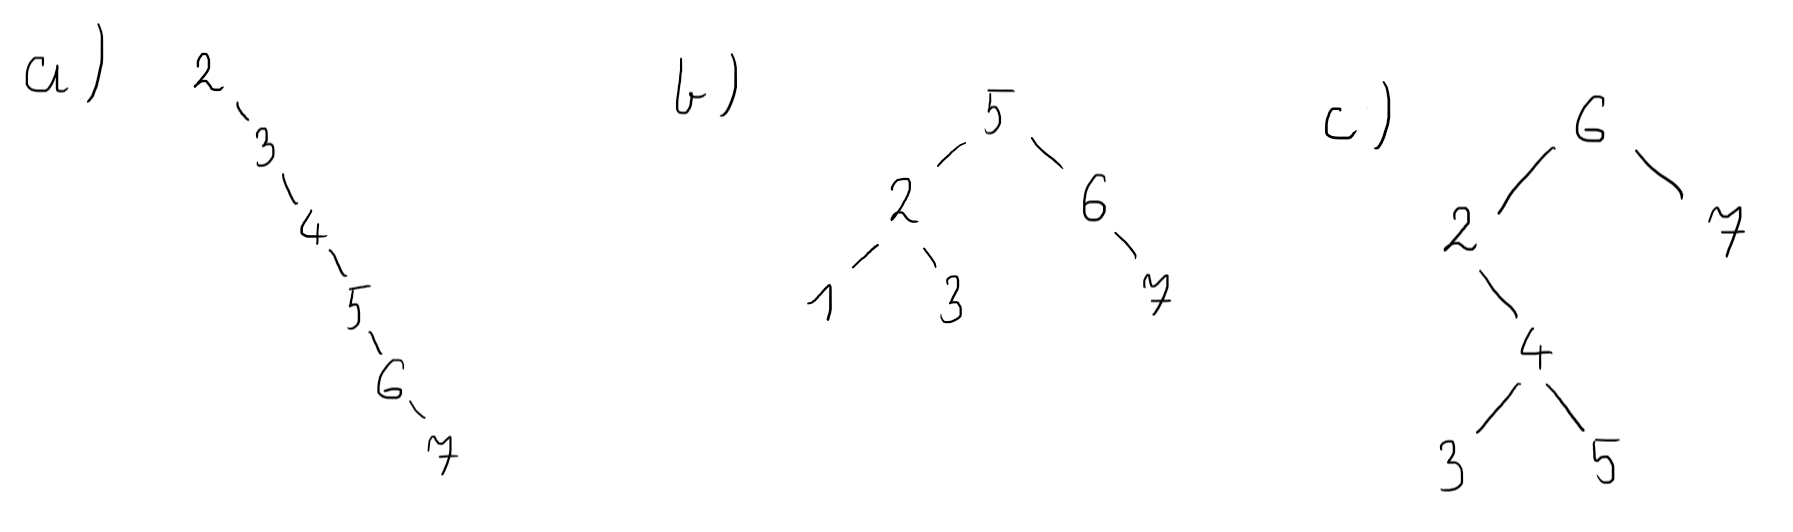 a)
2
3
4
5
6
7
b)
5
2 6
1 3 7
c)
6
2 7
4
3 5